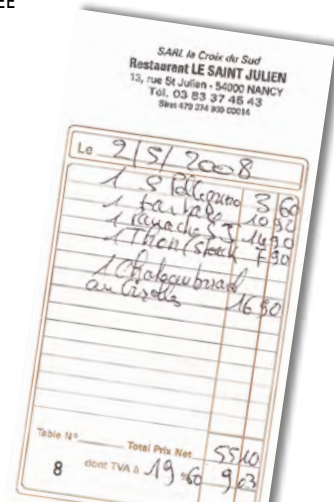 SARL la Croix du Sud
Restaurant LE SAINT JULIEN
13, rue St Julien - 54000 NANCY
Tél. 03 83 37 45 43
Siret 479 274 900 00014
Le 2/5/2008
1 S Pellegrino 3 60
1 tartare 10 90
1 14 90
1 Thon 7 90
1 Chateaubriand
au Girolles 16 90
Table N° Total Prix Net 55 10
8 dont TVA à 19.60 9,03